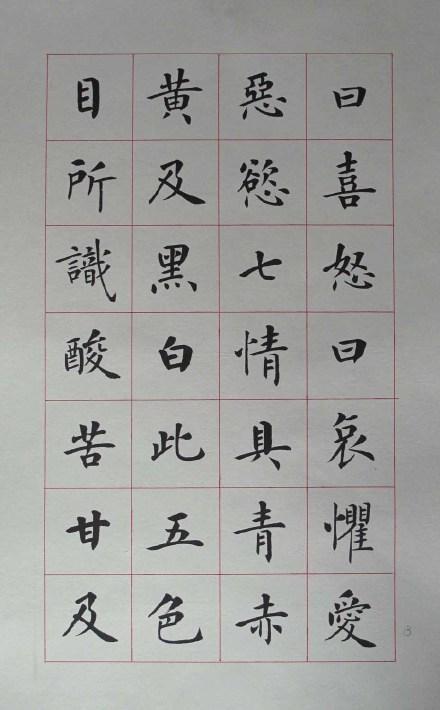 曰喜怒曰哀懼愛
惡慾七情具青赤
黃及黑白此五色
目所識酸苦甘及
8